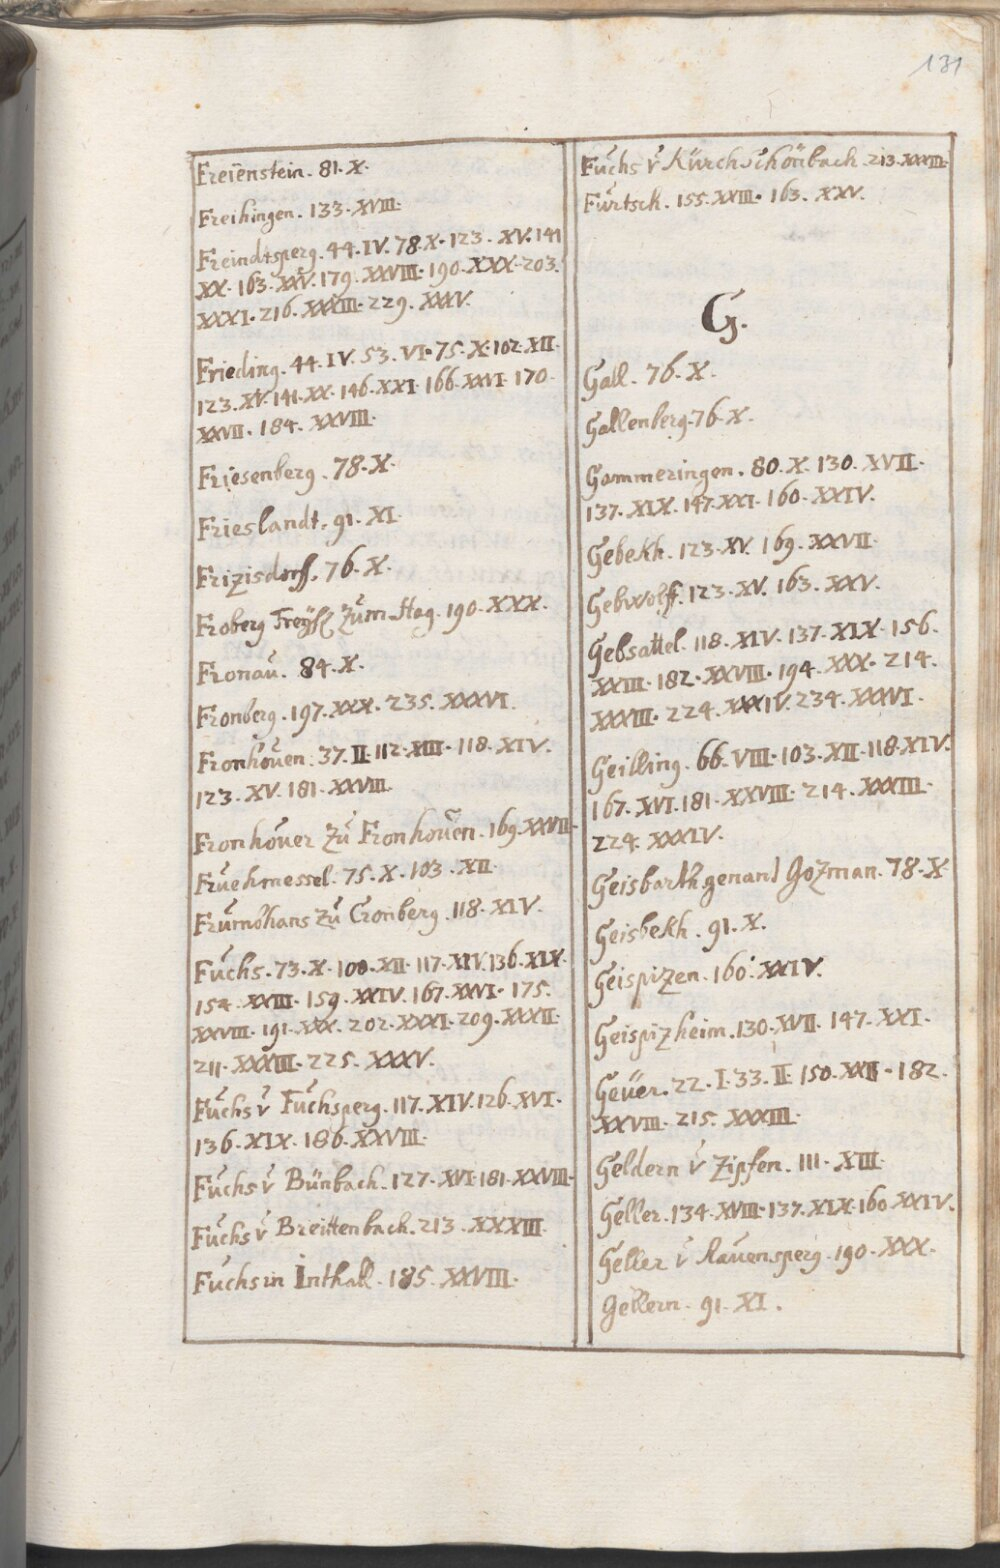 131
Freienstein. 81. X.
Freihingen. 133. XVIII.
Freindtsperg. 44. IV. 78. X. 123. XV. 141
XX. 163. XXV. 179. XXVIII. 190. XXX. 203.
XXXI. 216. XXXIII. 229. XXXV.
Frieding. 44. IV. 53. VI. 75. X. 102. XII.
123. XV. 141. XX. 146. XXI. 166. XXVI. 170
XXVII. 184. XXVIII.
Friesenberg. 78. X.
Frieslandt. 91. XI.
Frizisdorff. 76. X.
Froberg Zum Hag. 190. XXX.
Fronaŭ. 84. X.
Fronberg. 197. XXX. 235. XXXVI.
Fronhoŭen. 37. II. 112. XIII. 118. XIV.
123. XV. 181. XXVIII.
Fronhoŭer Zŭ Fronhoŭen. 169. XXVII.
Frŭehmessel. 75. X. 103. XII.
Frŭmbhans Zŭ Cronberg. 118. XIV.
Fŭchs. 73. X. 100. XII. 117. XIV. 136. XIX.
154. XXIII. 159. XXIV. 167. XXVI. 175.
XXVIII. 191. XXX. 202. XXXI. 209. XXXII.
211. XXXIII. 225. XXXV.
Fŭchs v̆ Fŭchsperg. 117. XIV. 126. XVI.
136. XIX. 186. XXVIII.
Fŭchs v̆ Bünbach. 127. XVI. 181. XXVIII.
Fŭchs v̆ Breittenbach. 213. XXXIII.
Fŭchs in Inthall. 185. XXVIII.
Fŭchs v̆ Kŭrchschönbach. 213. XXXIII.
Fŭrtsch. 155. XXIII. 163. XXV.
G.
Gall. 76. X.
Gallenberg. 76. X.
Gammeringen. 80. X. 130. XVII.
137. XIX. 147. XXI. 160. XXIV.
Gebekh. 123. XV. 169. XXVII.
Gebwolff. 123. XV. 163. XXV.
Gebsattel. 118. XIV. 137. XIX. 156.
XXIII. 182. XXVIII. 194. XXX. 214.
XXXIII. 224. XXXIV. 234. XXXVI.
Geilling. 66. VIII. 103. XII. 118. XIV.
167. XVI. 181. XXVIII. 214. XXXIII.
224. XXXIV.
Geisbarth genant Gozman. 78. X
Geisbekh. 91. X.
Geispizen. 160. XXIV.
Geispizheim. 130. XVII. 147. XXI.
Geüer. 22. I. 33. II. 150. XXII. 182.
XXVIII. 215. XXXIII.
Geldern v̆ Zipfen. 111. XIII.
Geller. 134. XVIII. 137. XIX. 160. XXIV.
Geller v̆ Raŭensperg. 190. XXX.
Gellern. 91. XI.